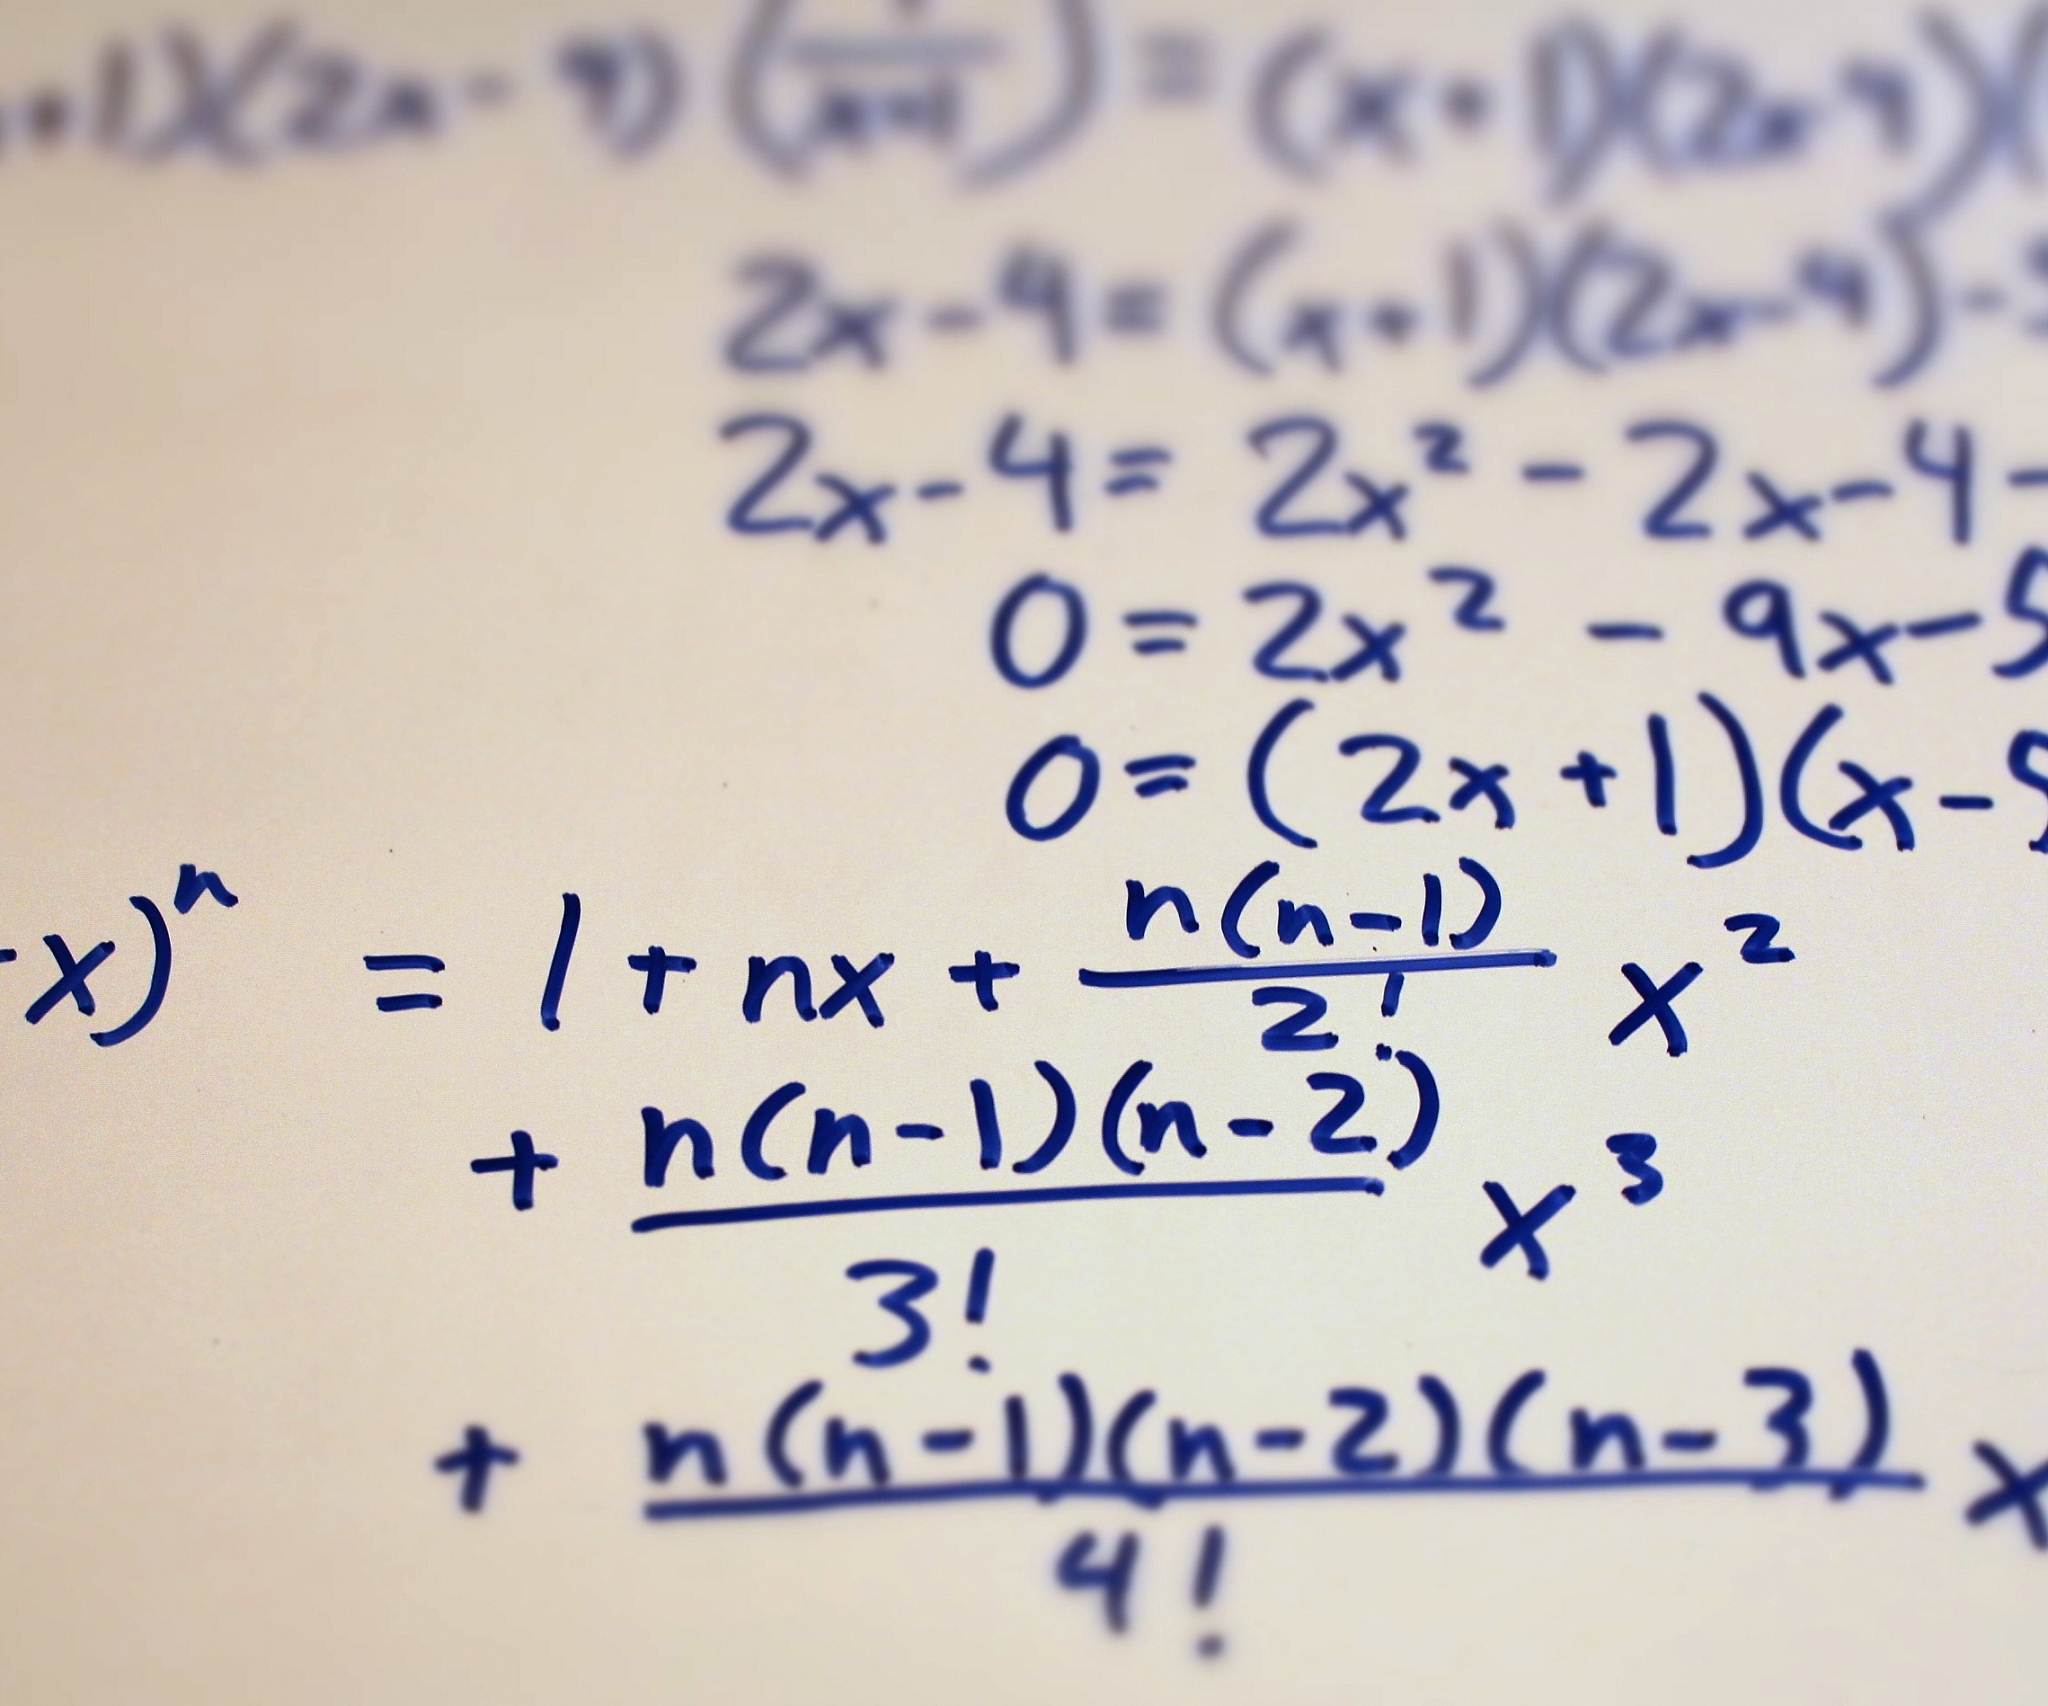 +1)(2x - 4) ( / (x+1) ) = (x + 1)(2x-4)(
2x - 4 = (x+1)(2x-4) -
2x - 4 = 2x² - 2x - 4 -
0 = 2x² - 9x - 5
0 = (2x + 1)(x - 5
x)ⁿ = 1 + nx + n(n-1)/2! x²
+ n(n-1)(n-2)/3! x³
+ n(n-1)(n-2)(n-3)/4! x